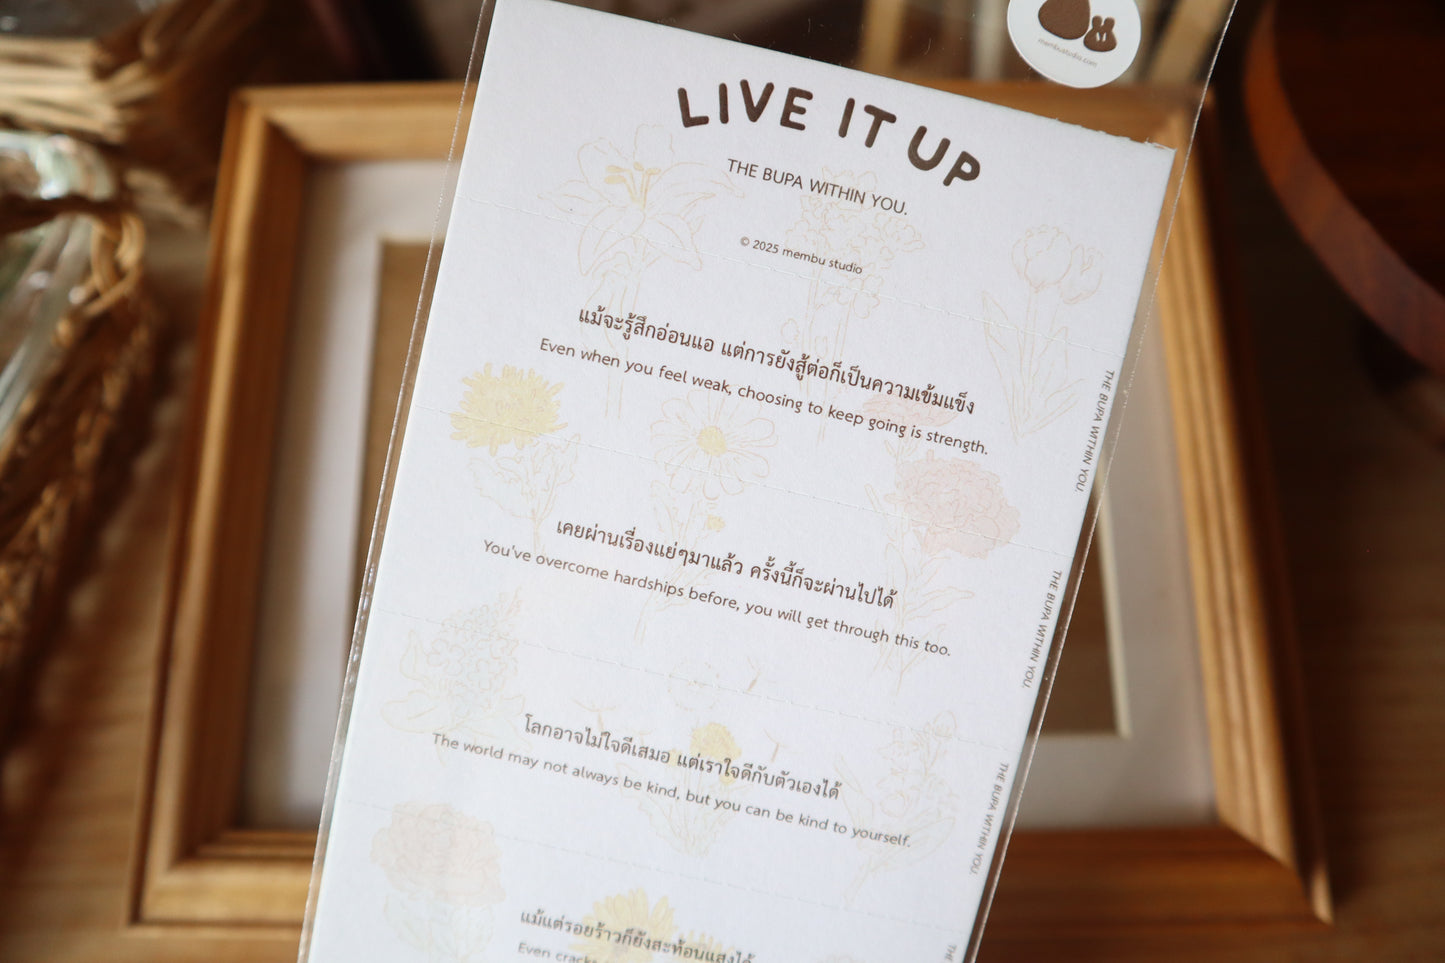 membustudio.com
LIVE IT UP
THE BUPA WITHIN YOU.
© 2025 membu studio
แม้จะรู้สึกอ่อนแอ แต่การยังสู้ต่อก็เป็นความเข้มแข็ง
Even when you feel weak, choosing to keep going is strength.
THE BUPA WITHIN YOU.
เคยผ่านเรื่องแย่ๆมาแล้ว ครั้งนี้ก็จะผ่านไปได้
You've overcome hardships before, you will get through this too.
THE BUPA WITHIN YOU.
โลกอาจไม่ใจดีเสมอ แต่เราใจดีกับตัวเองได้
The world may not always be kind, but you can be kind to yourself.
THE BUPA WITHIN YOU.
แม้แต่รอยร้าวก็ยังสะท้อนแสงได้
Even